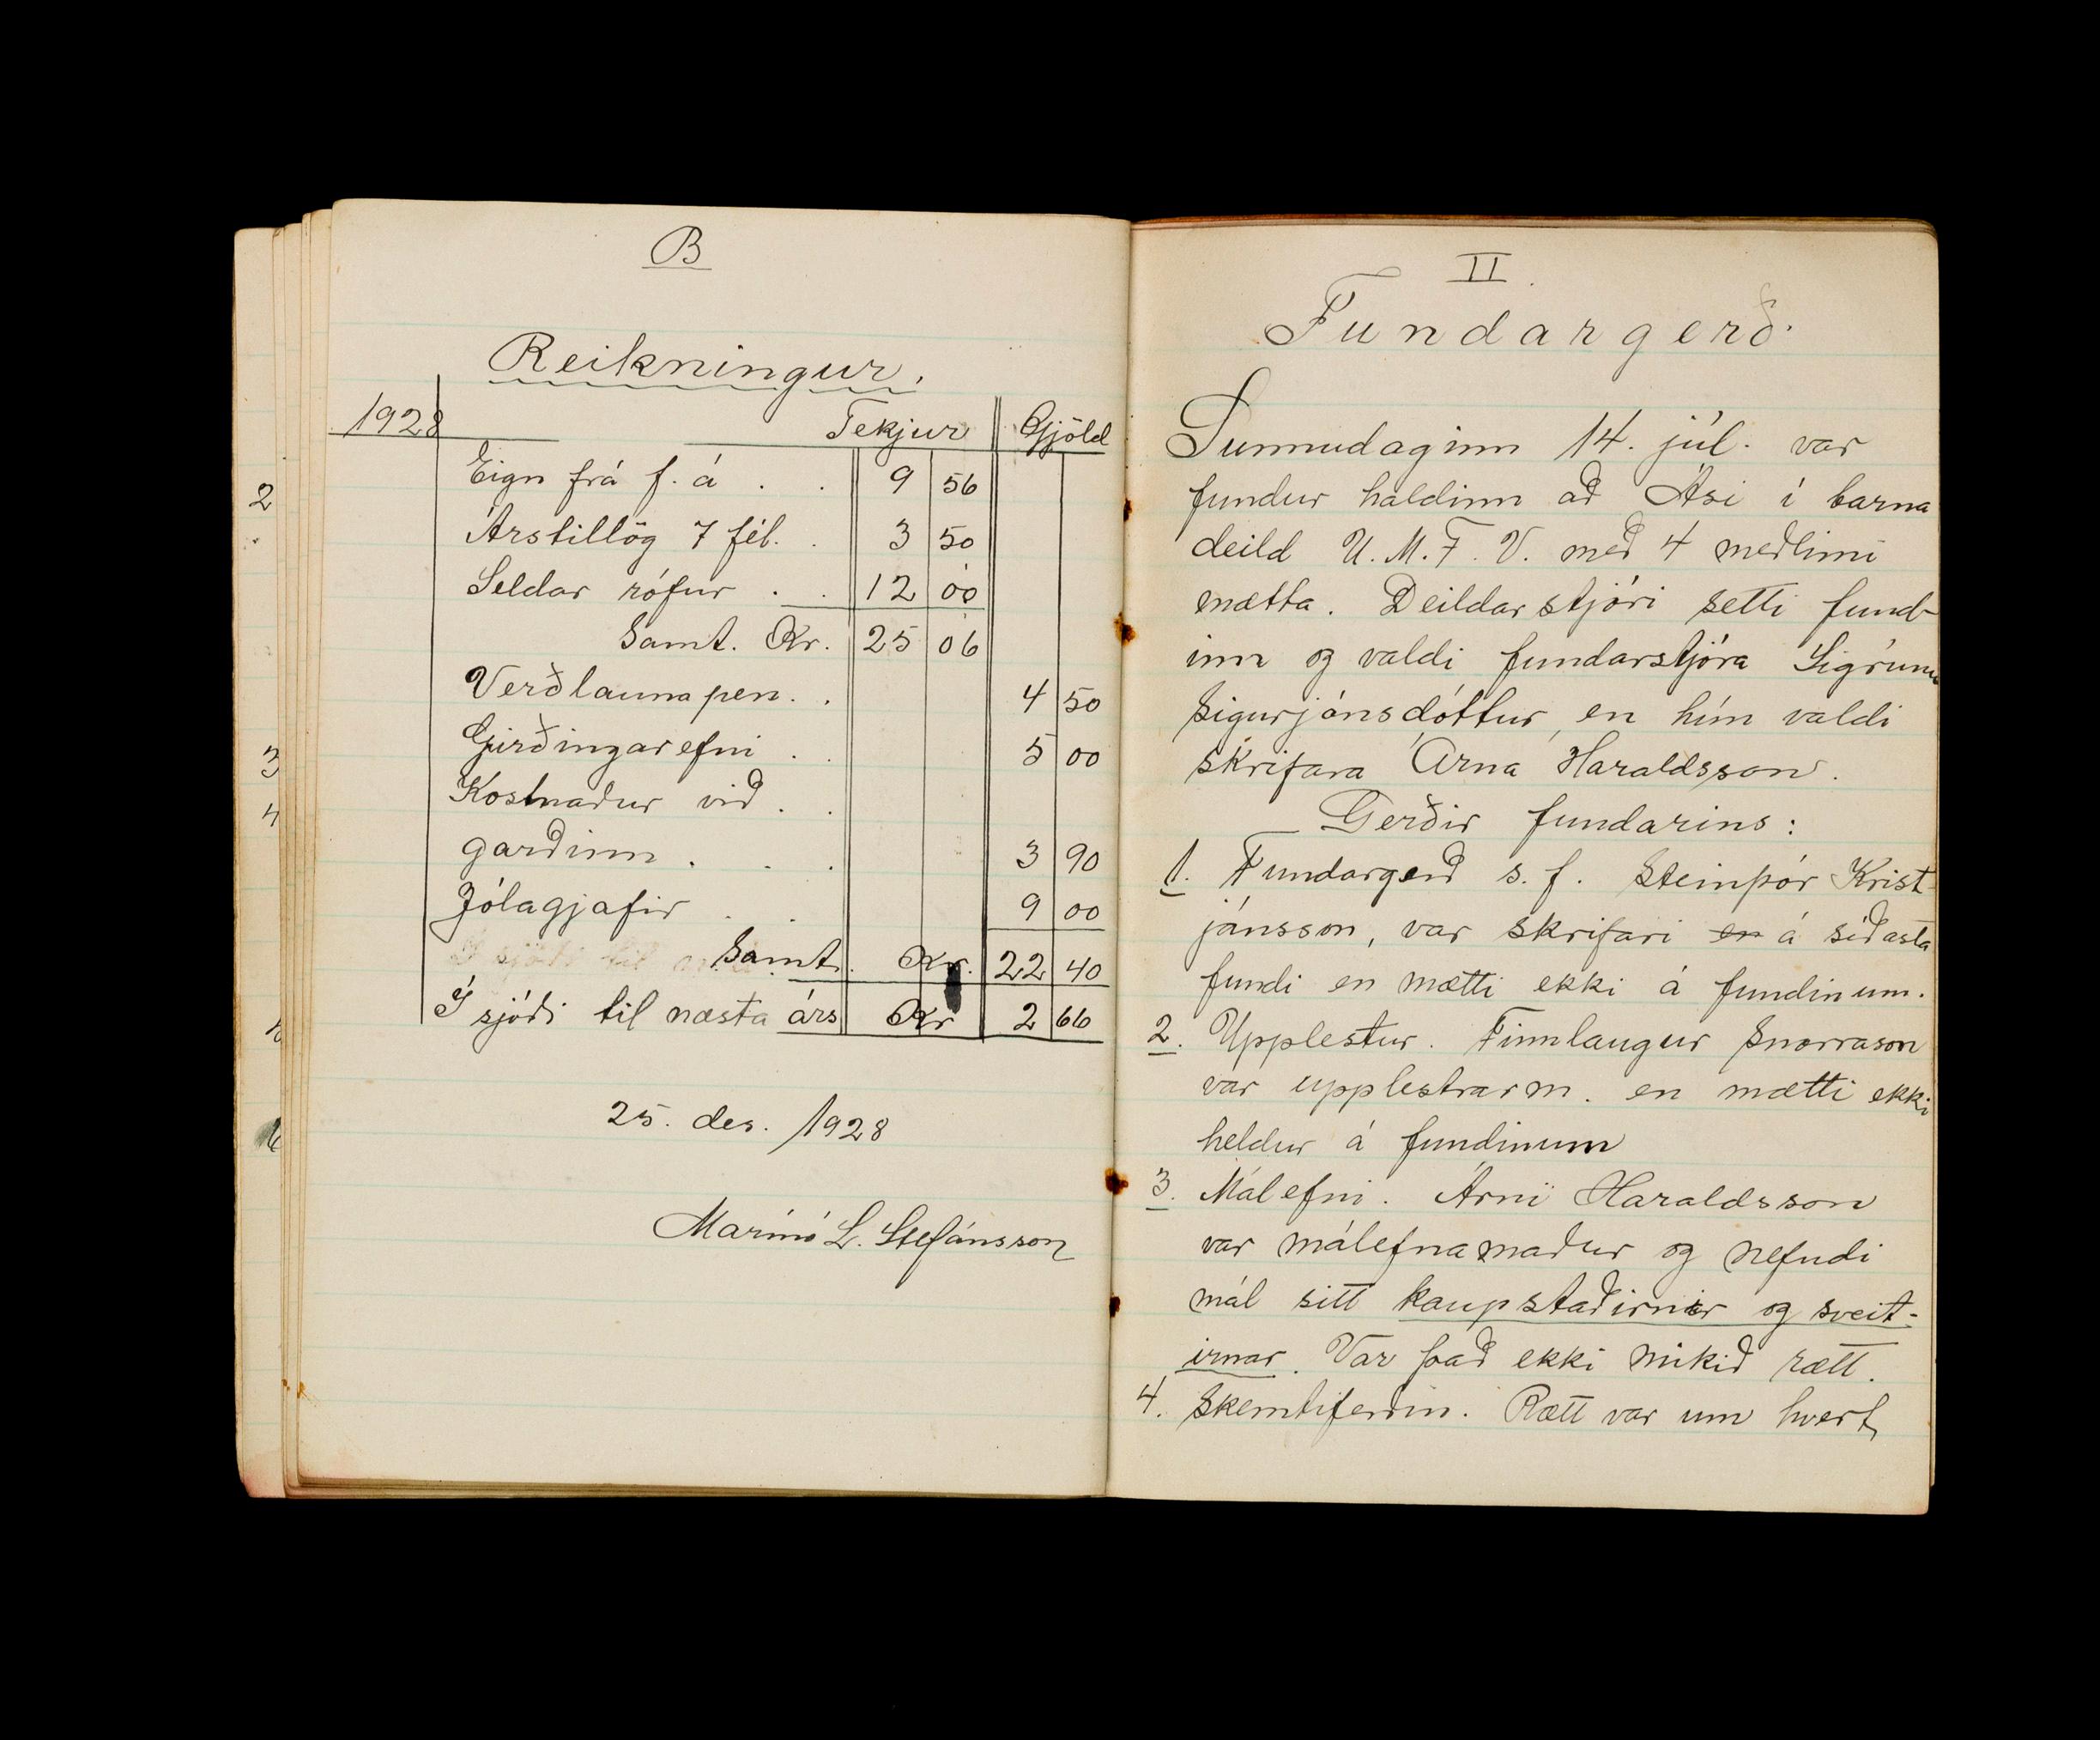 B
Reikningur.
1928 Tekjur Gjöld
Eign frá f. á . . 9 56
Árstillög 7 fél. . 3 50
Seldar rófur . . 12 00
Samt. Kr. 25 06
Verðlaunapen. . 4 50
Girðingarefni . . 5 00
Kostnaður við . .
garðinn . . . 3 90
Jólagjafir . . 9 00
Samt. Kr. 22 40
Í sjóði til næsta árs Kr 2 66
25. des. 1928
Marinó L. Stefánsson
2
3
4
II.
Fundargerð.
Sunnudaginn 14. júl. var
fundur haldinn að Ási í barna
deild U.M.F.V. með 4 meðlimi
mætta. Deildarstjóri setti fund-
inn og valdi fundarstjóra Sigrúnu
Sigurjónsdóttur, en hún valdi
skrifara Árna Haraldsson.
Gerðir fundarins:
1. Fundargerð s.f. Steinþór Krist-
jánsson, var skrifari en á síðasta
fundi en mætti ekki á fundinum.
2. Upplestur. Finnlaugur Snorrason
var upplestrarm. en mætti ekki
heldur á fundinum
3. Málefni. Árni Haraldsson
var málefnamaður og nefndi
mál sitt kaupstaðirnir og sveit-
irnar. Var það ekki mikið rætt.
4. Skemtiferðin. Rætt var um hvert